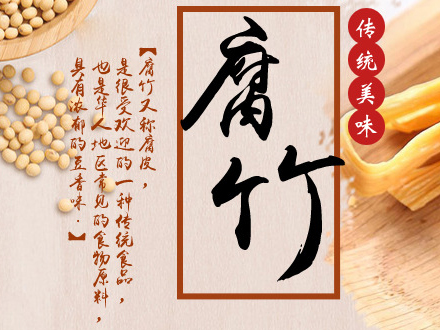 传统美味
腐竹
【腐竹又称腐皮，
是很受欢迎的一种传统食品，
也是华人地区常见的食物原料，
具有浓郁的豆香味.】